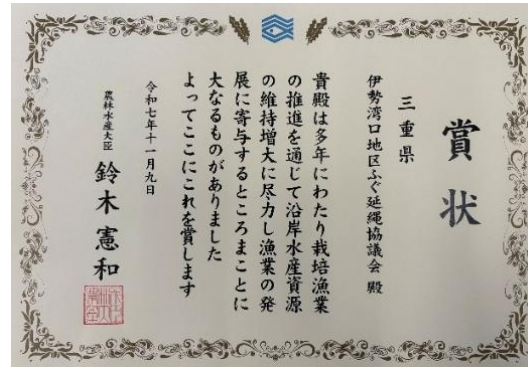 賞状
三重県
伊勢湾口地区ふぐ延縄協議会 殿
貴殿は多年にわたり栽培漁業
の推進を通じて沿岸水産資源
の維持増大に尽力し漁業の発
展に寄与するところまことに
大なるものがありました
よってここにこれを賞します
令和七年十一月九日
農林水産大臣 鈴木憲和